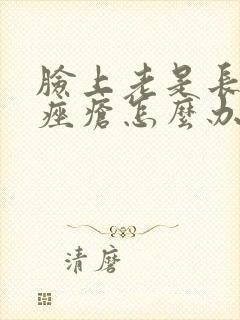 臉上老是長
痤瘡怎麼办
清磨